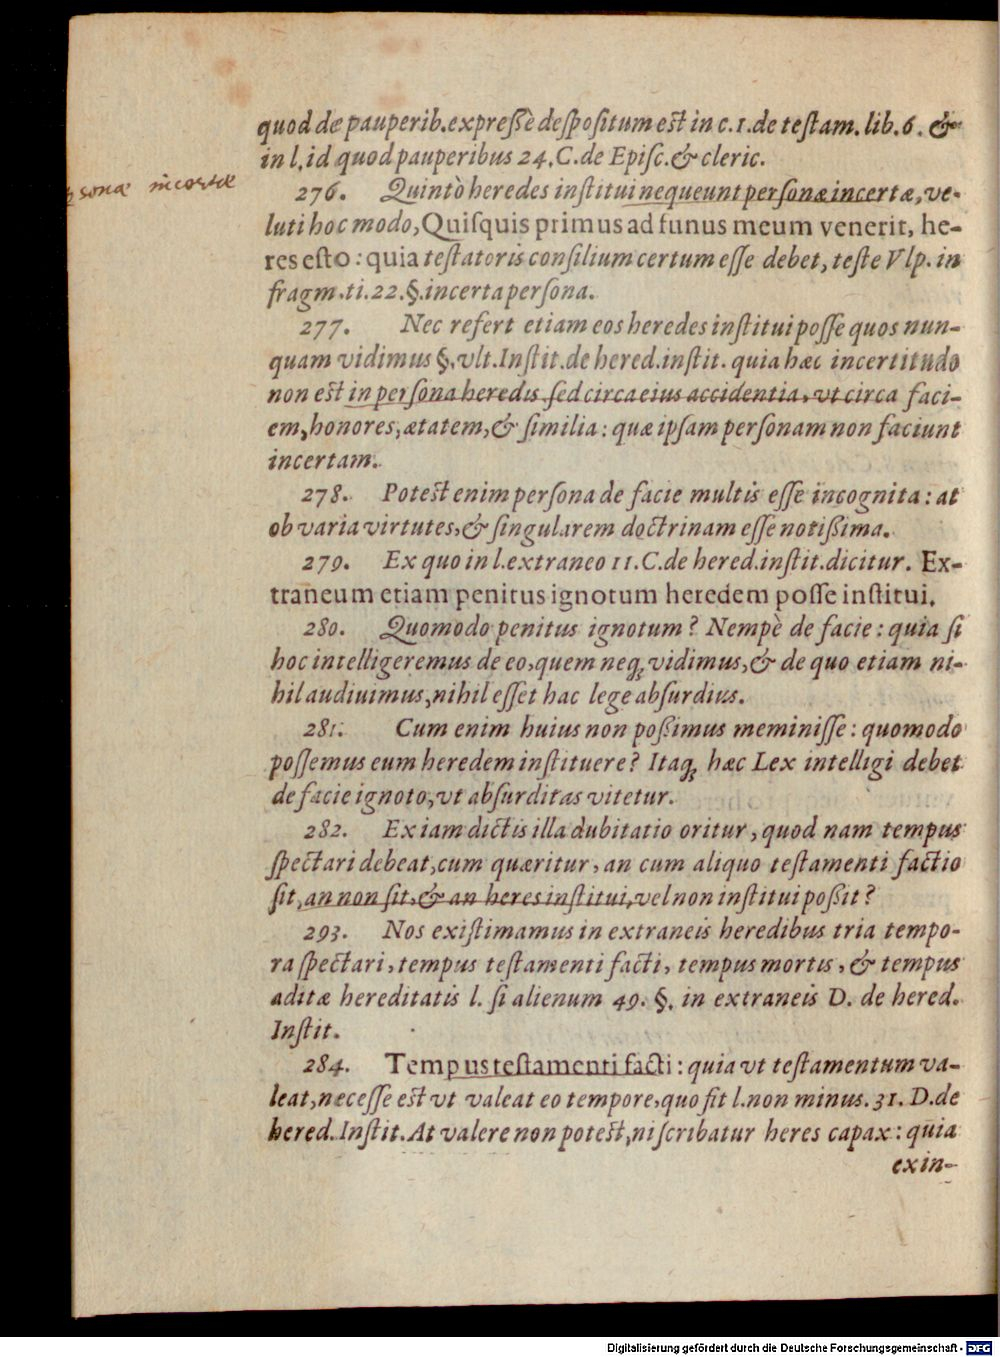 quod de pauperib. expreßè despositum est in c. 1. de testam. lib. 6. &
in l. id quod pauperibus 24. C. de Episc. & cleric.
personæ incertæ
276. Quintò heredes institui nequeunt personæ incertæ, ve-
luti hoc modo, Quisquis primus ad funus meum venerit, he-
res esto: quia testatoris consilium certum esse debet, teste Vlp. in
fragm. ti. 22. §. incerta persona.
277. Nec refert etiam eos heredes institui posse quos nun-
quam vidimus §. vlt. Instit. de hered. instit. quia hæc incertitudo
non est in persona heredis sed circa eius accidentia, vt circa faci-
em, honores, ætatem, & similia: quæ ipsam personam non faciunt
incertam.
278. Potest enim persona de facie multis esse incognita: at
ob varia virtutes, & singularem doctrinam esse notißima.
279. Ex quo in l. extraneo 11. C. de hered. instit. dicitur. Ex-
traneum etiam penitus ignotum heredem posse institui.
280. Quomodo penitus ignotum? Nempè de facie: quia si
hoc intelligeremus de eo, quem neq; vidimus, & de quo etiam ni-
hil audiuimus, nihil esset hac lege absurdius.
281. Cum enim huius non poßimus meminisse: quomodo
possemus eum heredem instituere? Itaq; hæc Lex intelligi debet
de facie ignoto, vt absurditas vitetur.
282. Ex iam dictis illa dubitatio oritur, quod nam tempus
spectari debeat, cum quæritur, an cum aliquo testamenti factio
sit, an non sit, & an heres institui, vel non institui poßit?
293. Nos existimamus in extraneis heredibus tria tempo-
ra spectari, tempus testamenti facti, tempus mortis, & tempus
aditæ hereditatis l. si alienum 49. §. in extraneis D. de hered.
Instit.
284. Tempus testamenti facti: quia vt testamentum va-
leat, necesse est vt valeat eo tempore, quo fit l. non minus. 31. D. de
hered. Instit. At valere non potest, ni scribatur heres capax: quia
exin-
Digitalisierung gefördert durch die Deutsche Forschungsgemeinschaft - DFG